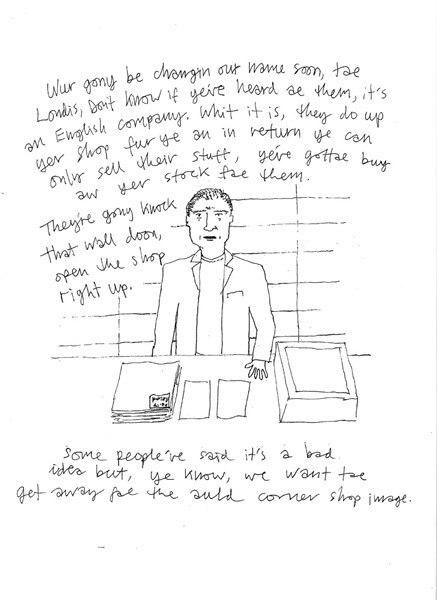 Wur gony be changin our name soon, tae
Londis, Don't know if yeive heard ae them, it's
an English company. Whit it is, they do up
yer shop fur ye an in return ye can
only sell their stuff, yeive gottae buy
aw yer stock fae them.
They're gony knock
that wall doon,
open the shop
right up.
Some people've said it's a bad
idea but, ye know, we want tae
get away fae the auld corner shop image.